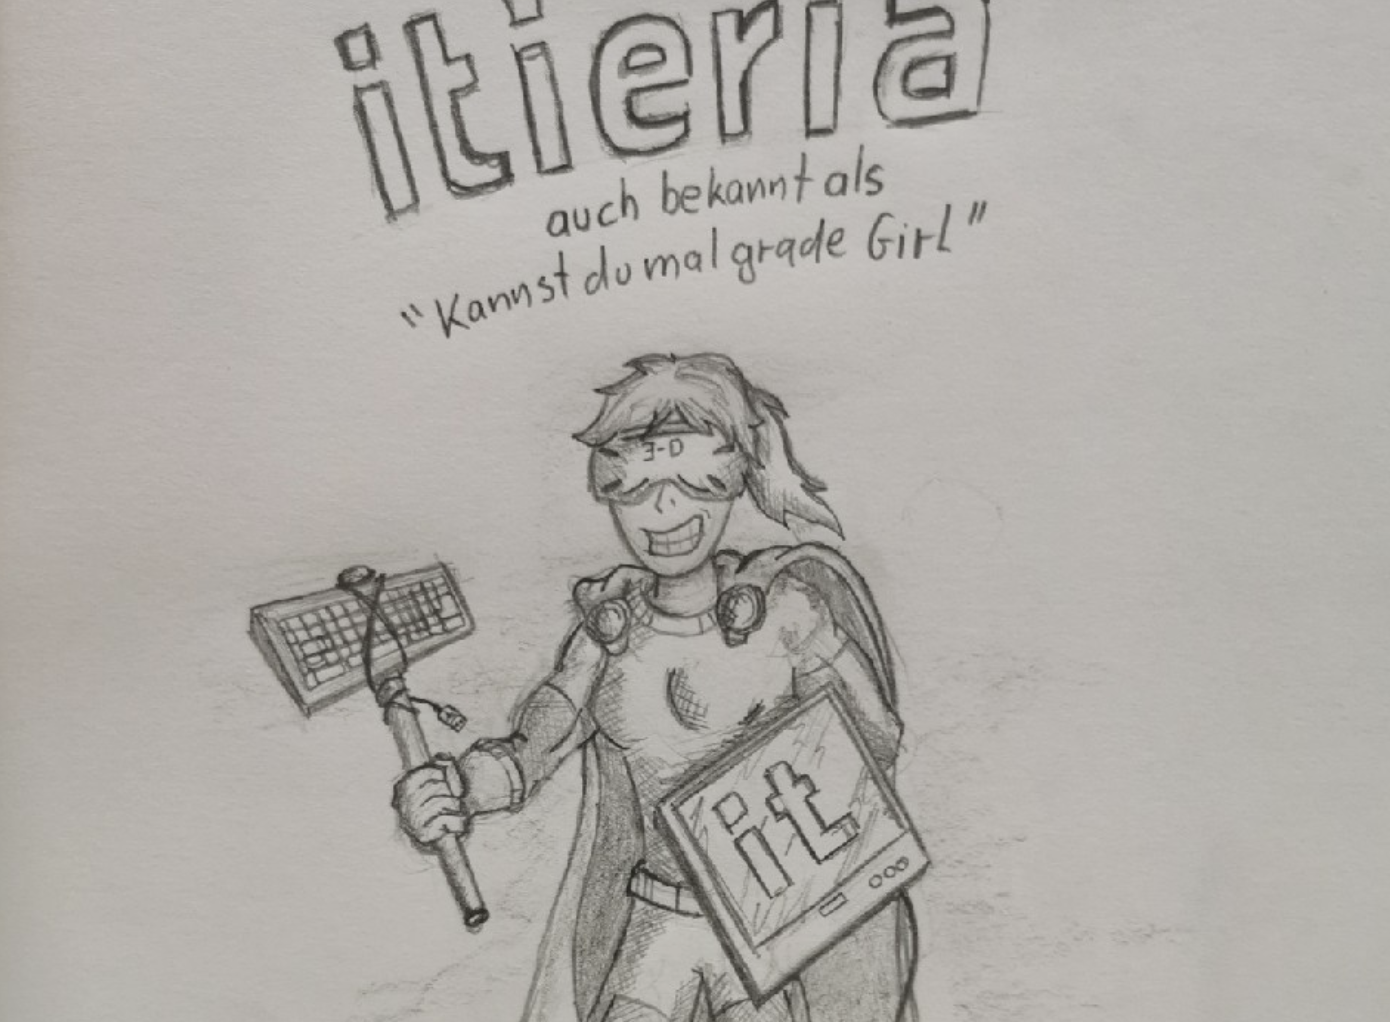 itieria
auch bekannt als
"Kannst du mal grade Girl"
3-D
it